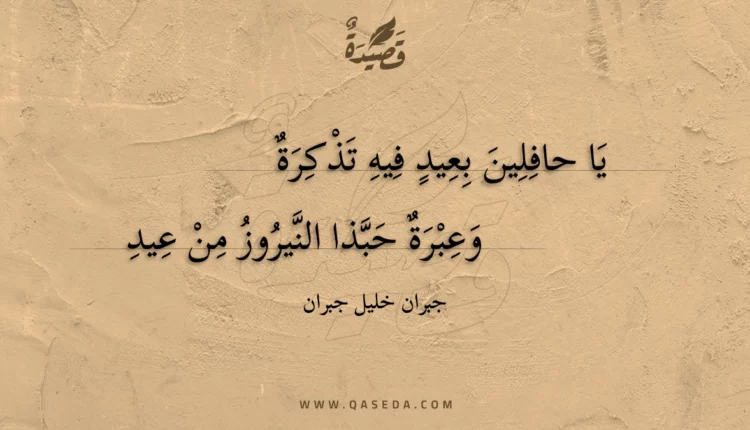 قَصِيْدَةٌ
يَا حافِلِينَ بِعِيدٍ فِيهِ تَذْكِرَةٌ
وَعِبْرَةٌ حَبَّذا النَّيرُوزُ مِنْ عِيدِ
جبران خليل جبران
WWW.QASEDA.COM